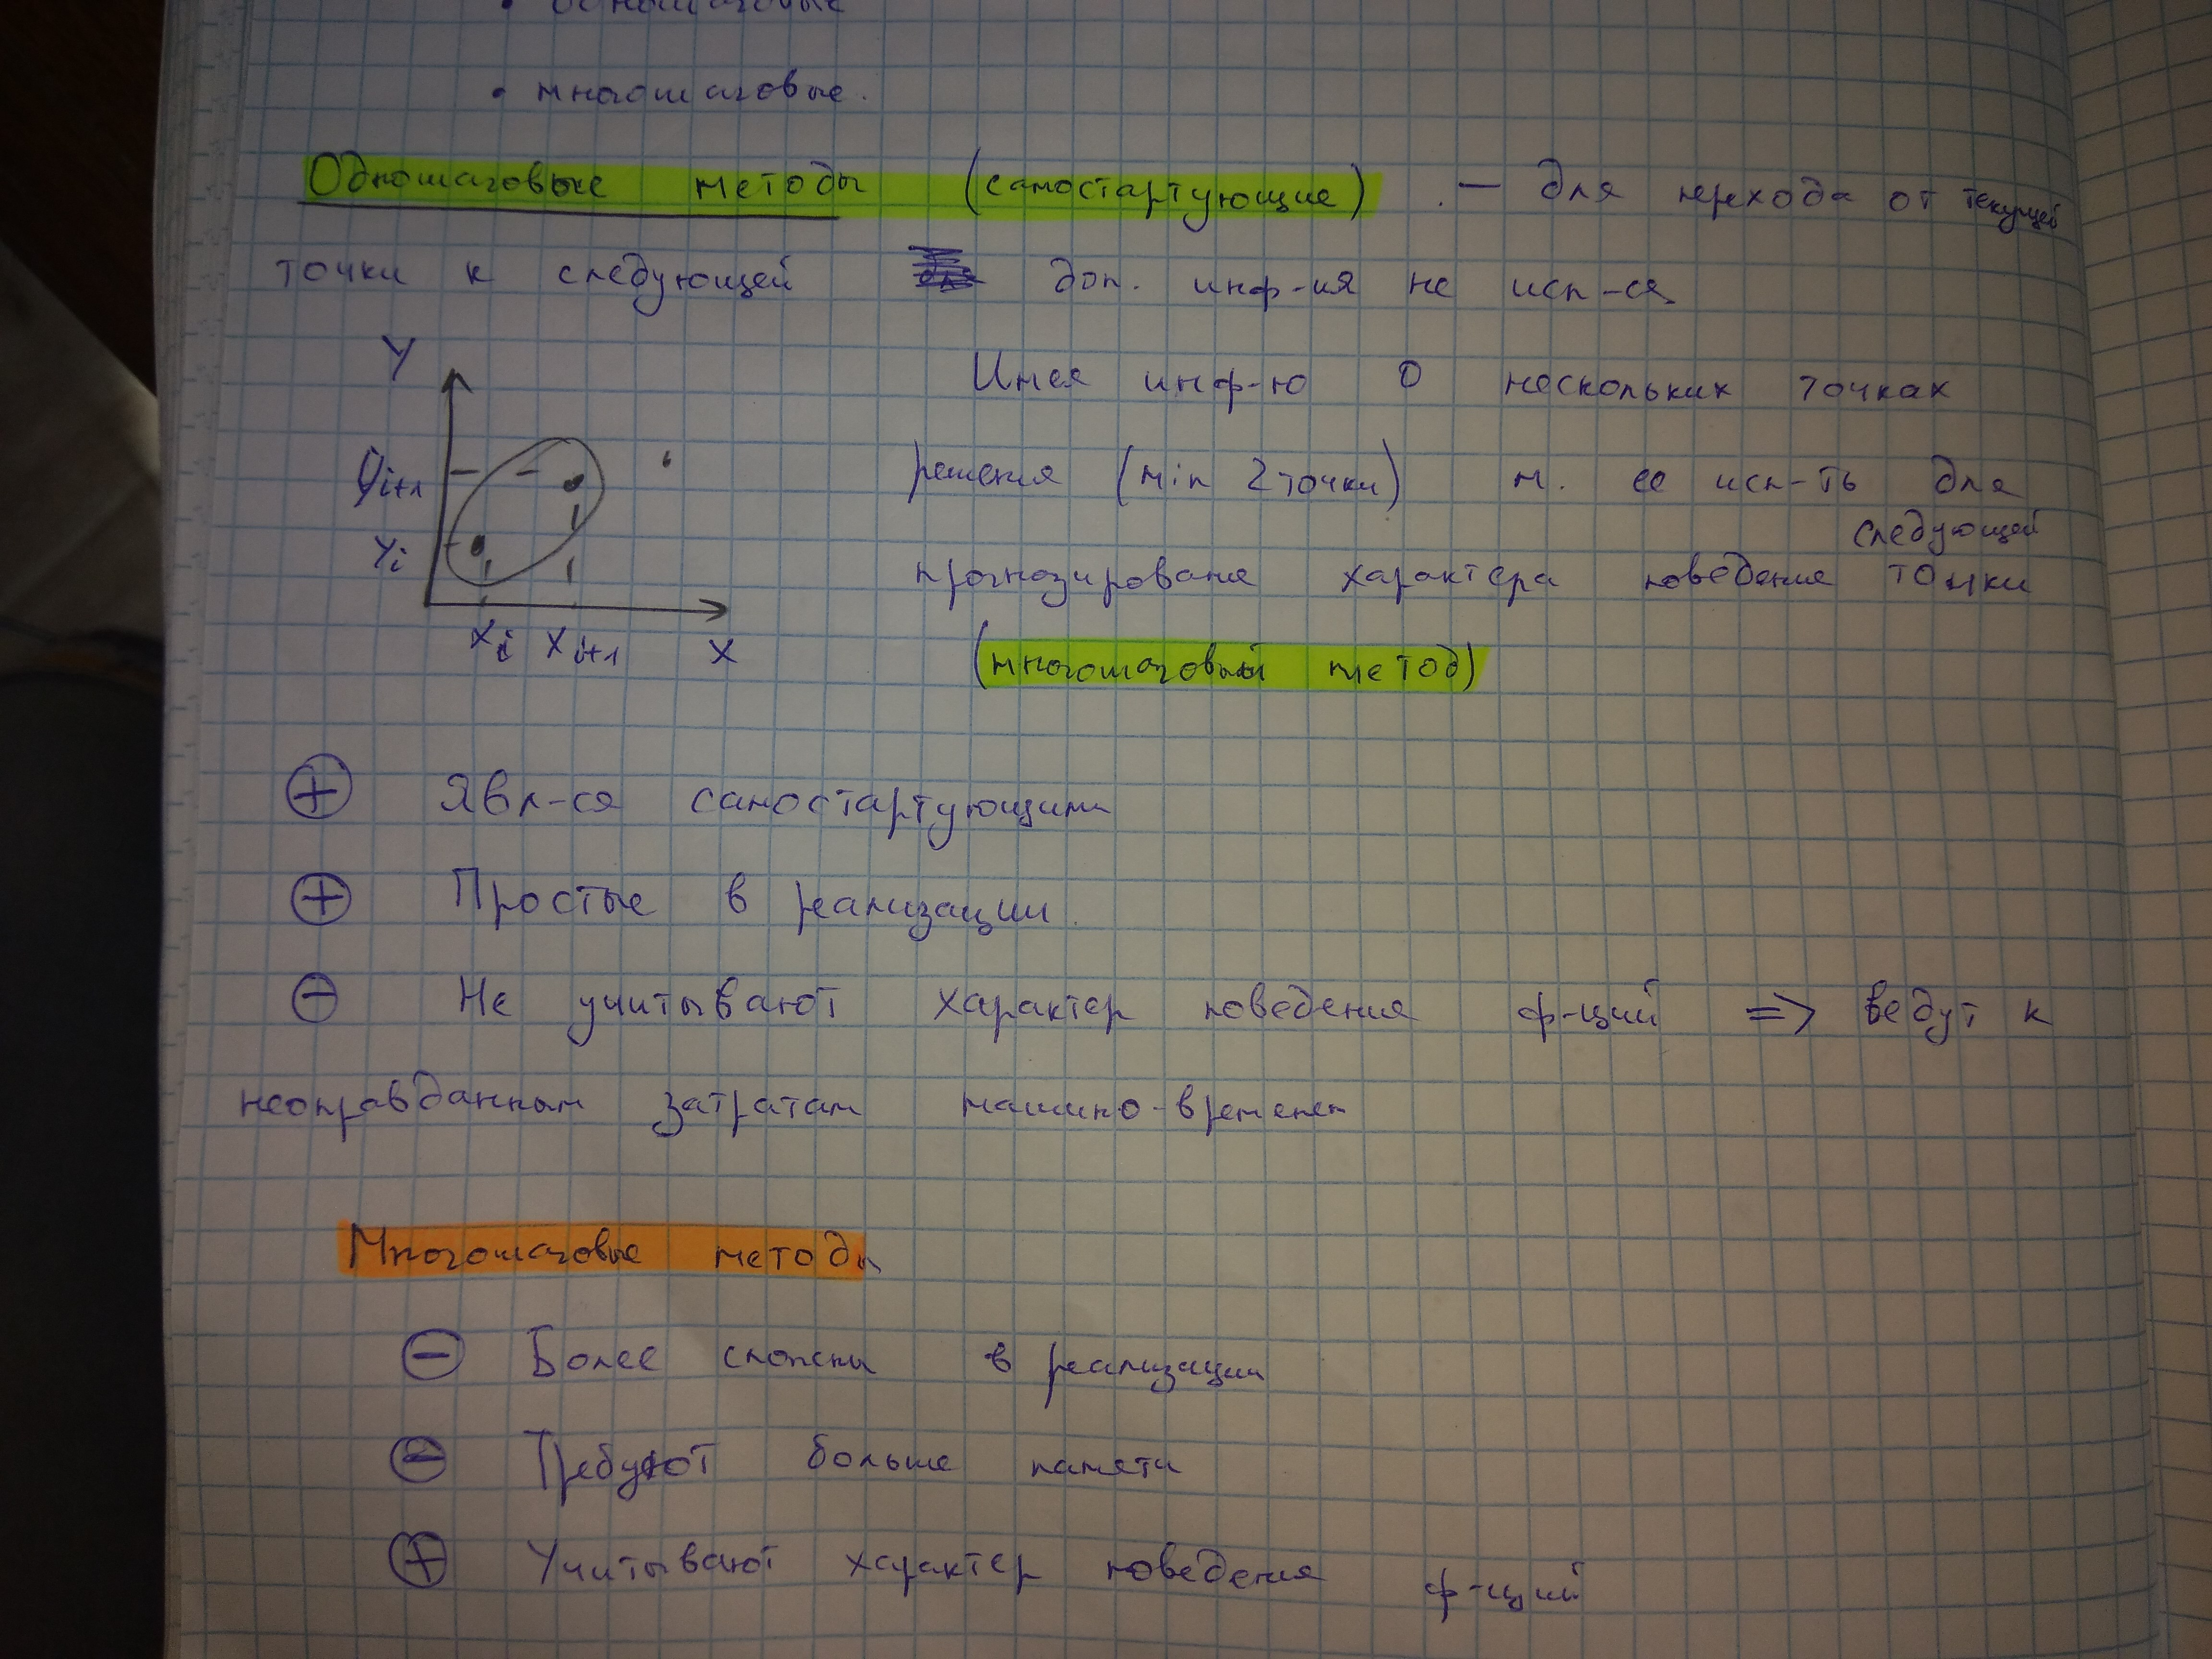 • одношаговые
• многошаговые.
Одношаговые методы (самостартующие) — для перехода от текущей
точки к следующей доп. инф-ия не исп-ся
Y
Имея инф-ю о нескольких точках
yi+1
решения (min 2 точки) м. ее исп-ть для
следующей
yi
прогнозирования характера поведения точки
xi xi+1 X
(многошаговый метод)
⊕ Явл-ся самостартующими
⊕ Простые в реализации.
⊖ Не учитывают характер поведения ф-ций => ведут к
неоправданным затратам машино-времени
Многошаговые методы
⊖ Более сложны в реализации
⊖ Требуют больше памяти
⊕ Учитывают характер поведения ф-ций